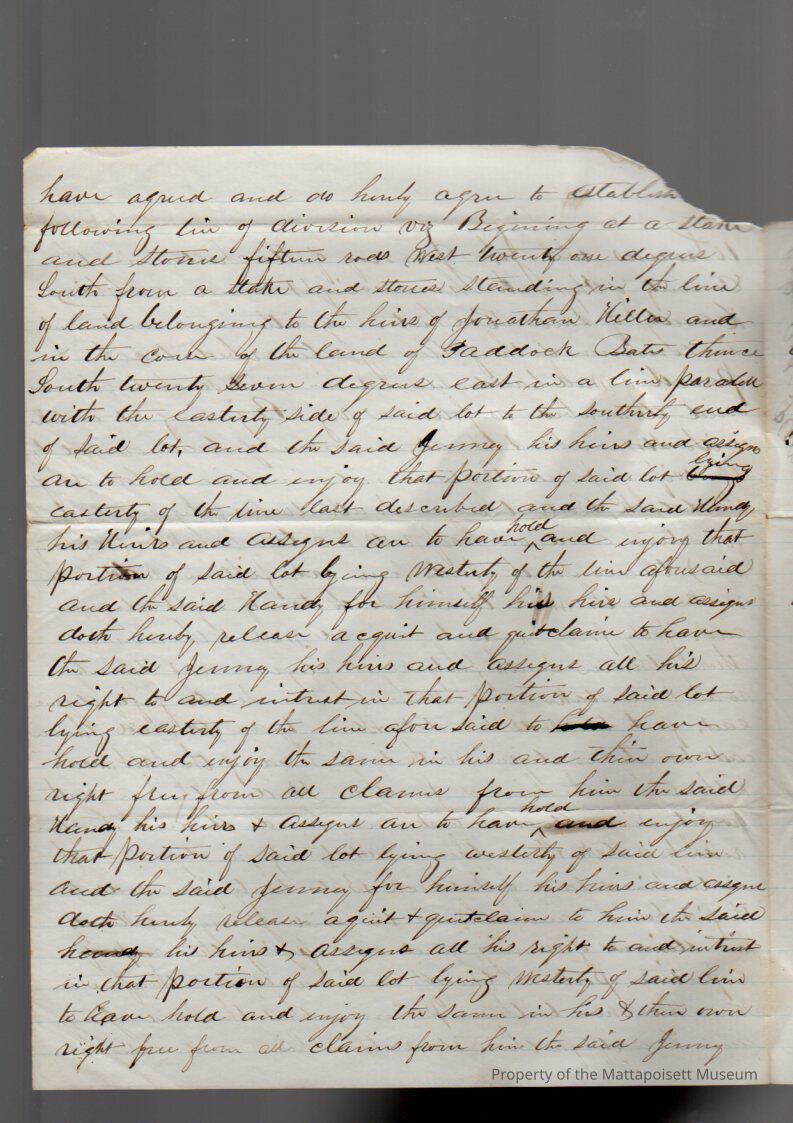 have agreed and do herby agree to establish
following line of division viz Begining at a stake
and stones fifteen rods West twenty one degrees
South from a stake and stones standing in the line
of land belonging to the heirs of Jonathan Hiller and
in the corner of the land of Paddock Bates thence
South twenty seven degrees east in a line paralell
with the easterly side of said lot to the southerly end
of said lot, and the said Jenney his heirs and assigns
are to hold and enjoy that portion of said lot lying
easterly of the line last described and the said Handy
his Heirs and assigns are to have hold and enjoy that
portion of said lot lying westerly of the line aforesaid
and the said Handy for himself his heirs and assigns
doth herby release acquit and quitclaim to have
the said Jenney his heirs and assigns all his
right to and intrest in that portion of said lot
lying easterly of the line afore said to have
hold and enjoy the same in his and their own
right free from all claims from him the said
Handy his heirs & assigns are to have hold and enjoy
that portion of said lot lying westerly of said line
and the said Jenney for himself his heirs and assigns
doth herby release aquit & quitclaim to him the said
handy his heirs & assigns all his right to and intrest
in that portion of said lot lying westerly of said line
to have hold and enjoy the same in his & their own
right free from all claims from him the said Jenney
Property of the Mattapoisett Museum